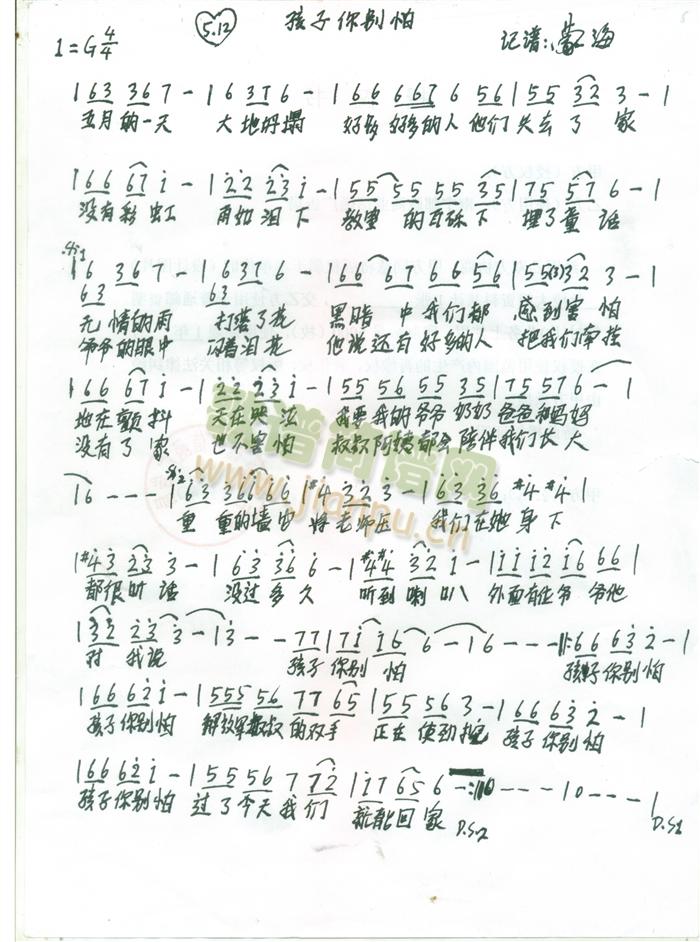 5.12 孩子你别怕
1=G 4/4 记谱:
1 63 367 - | 6 3T6 - | 66 667 6 56 | 55 32 3 - |
五月的一天 大地好塌 好多好多的人他们失去了 家
| 66 67 i - | 22 23 i - | 55 55 55 35 | 75 576 - |
没有彩虹 雨如泪下 教室 的瓦砾下 埋了童话
无情的雨 打落了花 黑暗 中我们都 感到害怕
爷爷的眼中 闪着泪花 他说还有好多的人 把我们牵挂
| 66 67 i - | 22 23 i - | 55 56 55 35 | 75 576 - |
地在颤抖 天在哭泣 我要我的爷爷奶奶爸爸和妈妈
没有了家 也不害怕 叔叔阿姨都会陪伴我们长大
| 6 - - - | 63 36666 | #4 223 - | 63 36 #4 #4 |
重 重的墙 将老师压 我们在她身下
| #43 23 3 - | 63 36 6 - | #4#4 32 1 - | iii2 i6 66 |
都很听话 没过多久 听到喇叭 外面有位爷爷他
| 32 23 3 - | 3 - - 77 | 7i i6 6 - | 6 - - - |: 66 632 - |
对 我说 孩子你别 怕 孩子你别怕
| 66 62 i - | 555 56 77 65 | 55 56 3 - | 66 632 - |
孩子你别怕 解放军叔叔的双手 正在使劲挖 孩子你别怕
| 66 62 i - | 55 56 7 72 | i7 656 - :| 0 - - - | 0 - - - |
孩子你别怕 过了今天我们 就能回家 D.S2 D.S1
歌谱简谱网
www.jianpu.cn